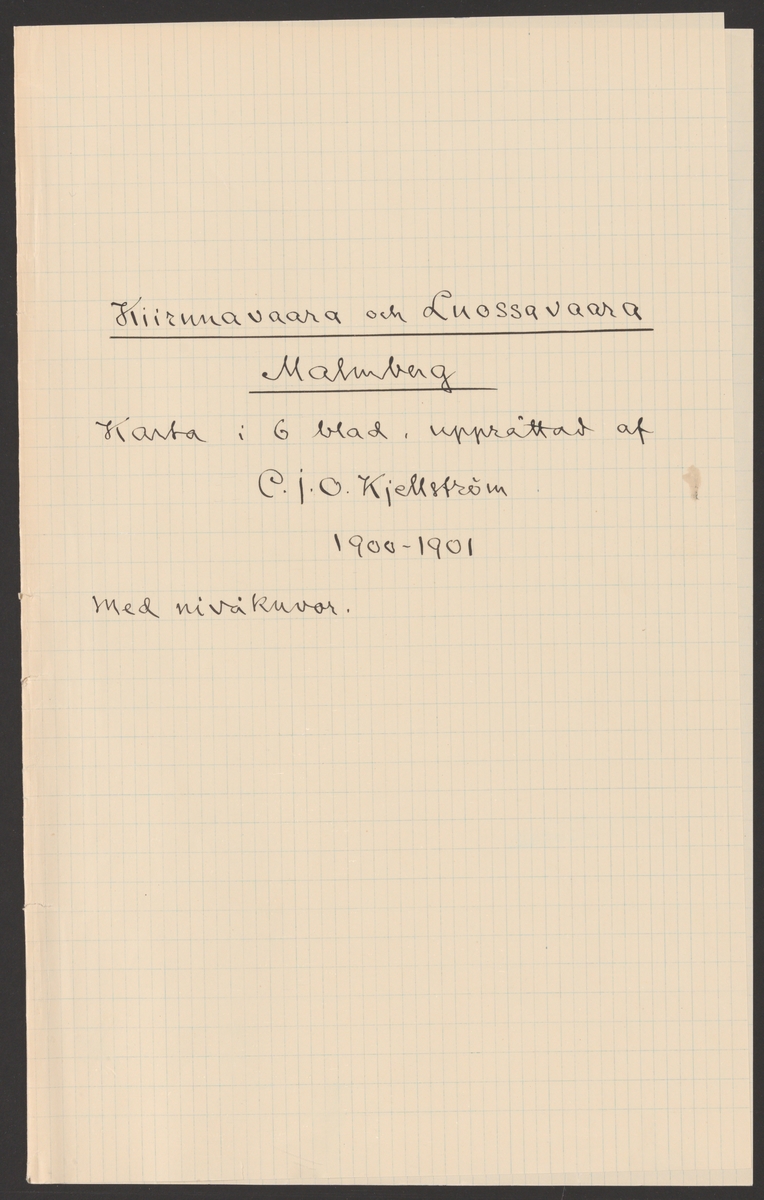 Kiirunavaara och Luossavaara
Malmberg
Karta i 6 blad, upprättad af
C. J. O. Kjellström
1900-1901
med nivåkuvor.